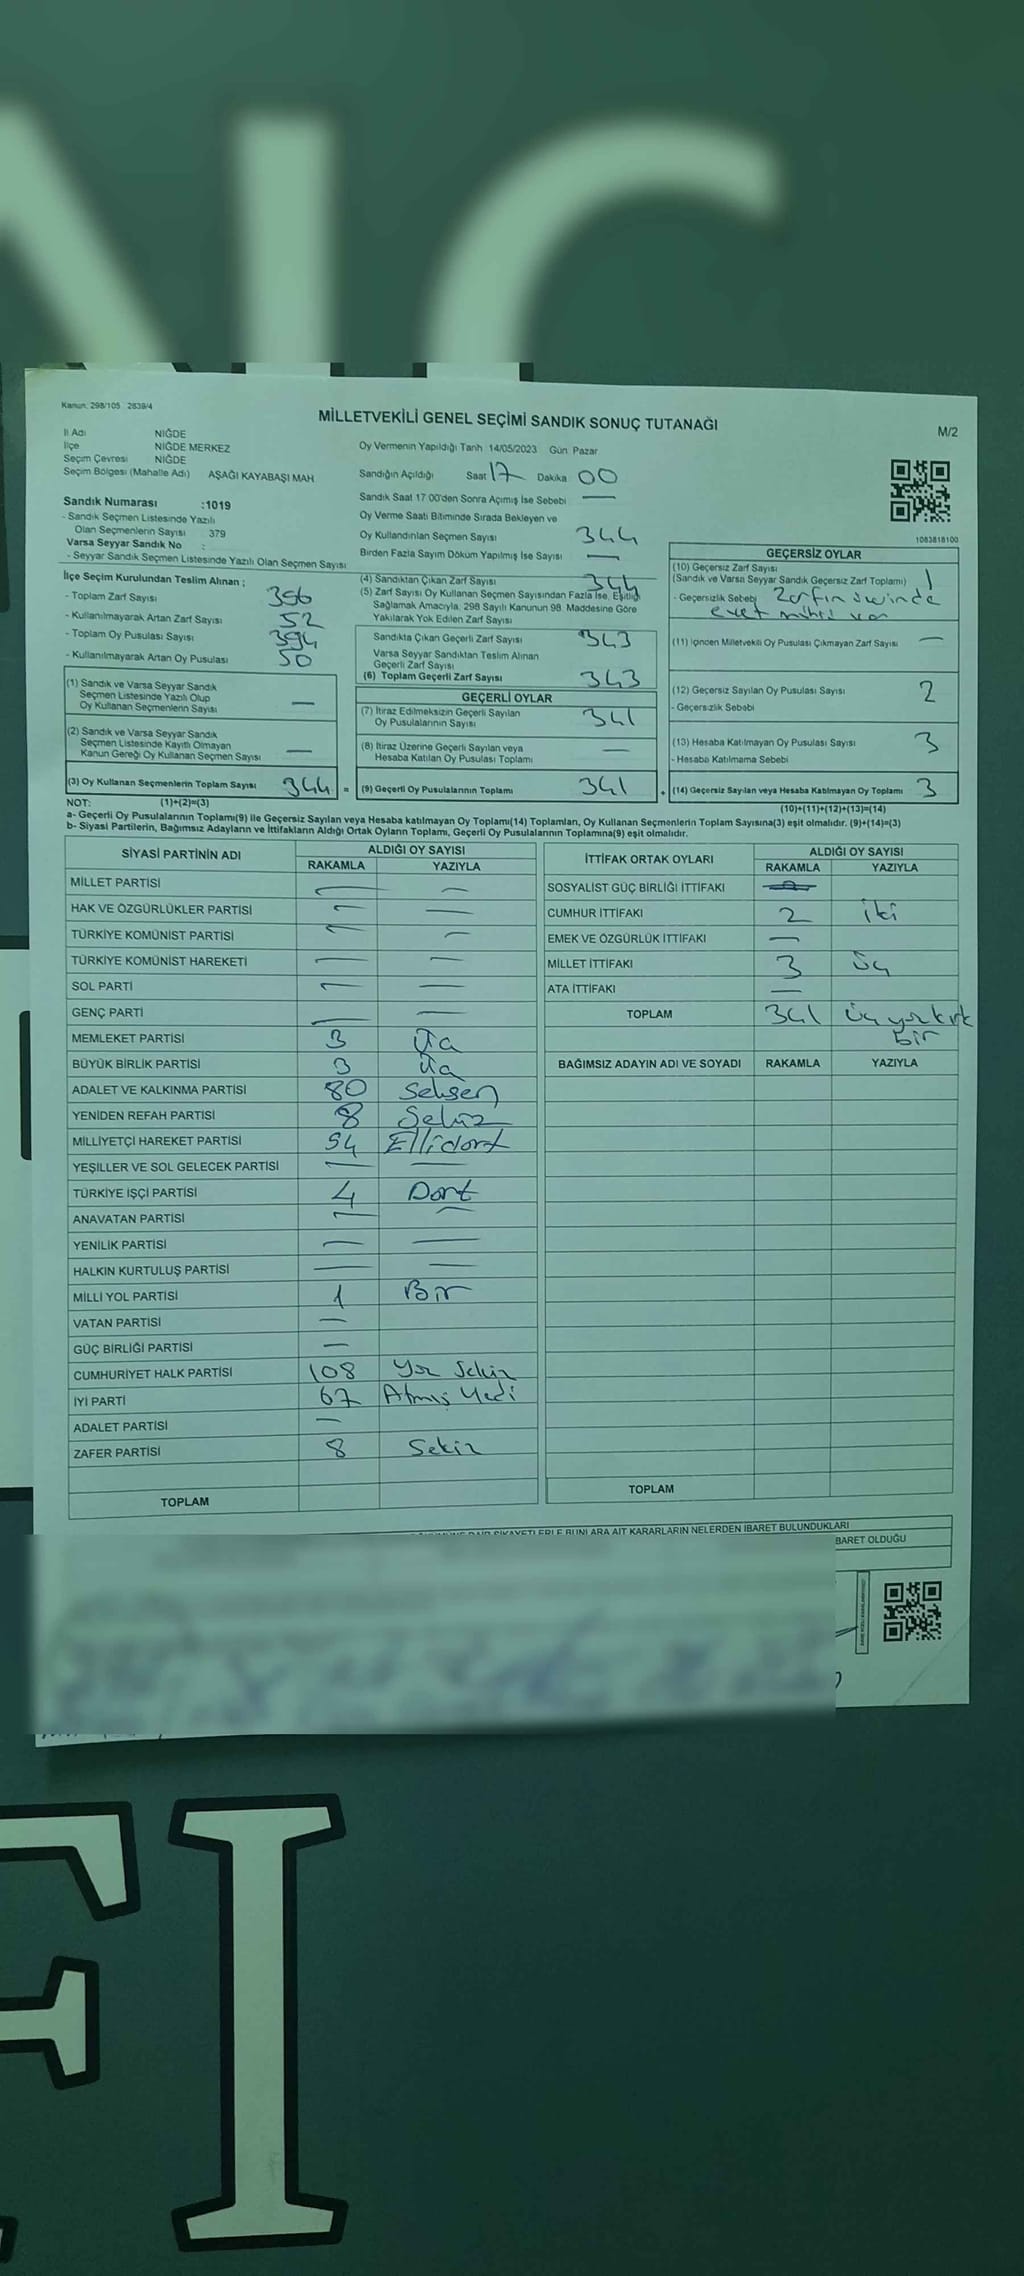 NG
Kanun: 298/105 2839/4
MİLLETVEKİLİ GENEL SEÇİMİ SANDIK SONUÇ TUTANAĞI
M/2
İl Adı NİĞDE
İlçe NİĞDE MERKEZ
Seçim Çevresi NİĞDE
Seçim Bölgesi (Mahalle Adı) AŞAĞI KAYABAŞI MAH
Oy Vermenin Yapıldığı Tarih 14/05/2023 Gün Pazar
Sandığın Açıldığı Saat 17 Dakika 00
Sandık Saat 17:00'den Sonra Açımış İse Sebebi —
Oy Verme Saati Bitiminde Sırada Bekleyen ve
Oy Kullandırılan Seçmen Sayısı 344
Birden Fazla Sayım Döküm Yapılmış İse Sayısı —
Sandık Numarası :1019
- Sandık Seçmen Listesinde Yazılı
Olan Seçmenlerin Sayısı 379
Varsa Seyyar Sandık No :
- Seyyar Sandık Seçmen Listesinde Yazılı Olan Seçmen Sayısı
1083818100
İlçe Seçim Kurulundan Teslim Alınan ;
- Toplam Zarf Sayısı 396
- Kullanılmayarak Artan Zarf Sayısı 52
- Toplam Oy Pusulası Sayısı 394
- Kullanılmayarak Artan Oy Pusulası 50
(1) Sandık ve Varsa Seyyar Sandık
Seçmen Listesinde Yazılı Olup
Oy Kullanan Seçmenlerin Sayısı —
(2) Sandık ve Varsa Seyyar Sandık
Seçmen Listesinde Kayıtlı Olmayan
Kanun Gereği Oy Kullanan Seçmen Sayısı —
(3) Oy Kullanan Seçmenlerin Toplam Sayısı 344 =
(4) Sandıktan Çıkan Zarf Sayısı 344
(5) Zarf Sayısı Oy Kullanan Seçmen Sayısından Fazla İse, Eşitliği
Sağlamak Amacıyla, 298 Sayılı Kanunun 98. Maddesine Göre
Yakılarak Yok Edilen Zarf Sayısı
Sandıkta Çıkan Geçerli Zarf Sayısı 343
Varsa Seyyar Sandıktan Teslim Alınan
Geçerli Zarf Sayısı
(6) Toplam Geçerli Zarf Sayısı 343
GEÇERLİ OYLAR
(7) İtiraz Edilmeksizin Geçerli Sayılan
Oy Pusulalarının Sayısı 341
(8) İtiraz Üzerine Geçerli Sayılan veya
Hesaba Katılan Oy Pusulası Toplamı —
(9) Geçerli Oy Pusulalarının Toplamı 341 +
GEÇERSİZ OYLAR
(10) Geçersiz Zarf Sayısı
(Sandık ve Varsa Seyyar Sandık Geçersiz Zarf Toplamı) 1
- Geçersizlik Sebebi Zarfın içinde
evet mührü var
(11) İçinden Milletvekili Oy Pusulası Çıkmayan Zarf Sayısı —
(12) Geçersiz Sayılan Oy Pusulası Sayısı 2
- Geçersizlik Sebebi
(13) Hesaba Katılmayan Oy Pusulası Sayısı 3
- Hesaba Katılmama Sebebi
(14) Geçersiz Sayılan veya Hesaba Katılmayan Oy Toplamı 3
NOT: (1)+(2)=(3) (10)+(11)+(12)+(13)=(14)
a- Geçerli Oy Pusulalarının Toplamı(9) ile Geçersiz Sayılan veya Hesaba katılmayan Oy Toplamı(14) Toplamları, Oy Kullanan Seçmenlerin Toplam Sayısına(3) eşit olmalıdır. (9)+(14)=(3)
b- Siyasi Partilerin, Bağımsız Adayların ve İttifakların Aldığı Ortak Oyların Toplamı, Geçerli Oy Pusulalarının Toplamına(9) eşit olmalıdır.
SİYASİ PARTİNİN ADI ALDIĞI OY SAYISI
RAKAMLA YAZIYLA
MİLLET PARTİSİ — —
HAK VE ÖZGÜRLÜKLER PARTİSİ — —
TÜRKİYE KOMÜNİST PARTİSİ — —
TÜRKİYE KOMÜNİST HAREKETİ — —
SOL PARTİ — —
GENÇ PARTİ — —
MEMLEKET PARTİSİ 3 Üç
BÜYÜK BİRLİK PARTİSİ 3 Üç
ADALET VE KALKINMA PARTİSİ 80 Seksen
YENİDEN REFAH PARTİSİ 8 Sekiz
MİLLİYETÇİ HAREKET PARTİSİ 54 Ellidört
YEŞİLLER VE SOL GELECEK PARTİSİ — —
TÜRKİYE İŞÇİ PARTİSİ 4 Dört
ANAVATAN PARTİSİ — —
YENİLİK PARTİSİ — —
HALKIN KURTULUŞ PARTİSİ — —
MİLLİ YOL PARTİSİ 1 Bir
VATAN PARTİSİ —
GÜÇ BİRLİĞİ PARTİSİ —
CUMHURİYET HALK PARTİSİ 108 Yüz Sekiz
İYİ PARTİ 67 Atmış Yedi
ADALET PARTİSİ —
ZAFER PARTİSİ 8 Sekiz
TOPLAM
İTTİFAK ORTAK OYLARI ALDIĞI OY SAYISI
RAKAMLA YAZIYLA
SOSYALİST GÜÇ BİRLİĞİ İTTİFAKI —
CUMHUR İTTİFAKI 2 iki
EMEK VE ÖZGÜRLÜK İTTİFAKI —
MİLLET İTTİFAKI 3 Üç
ATA İTTİFAKI —
TOPLAM 341 Üç yüz kırk
bir
BAĞIMSIZ ADAYIN ADI VE SOYADI RAKAMLA YAZIYLA
TOPLAM
ŞİKAYETLERLE BUNLARA AİT KARARLARIN NELERDEN İBARET BULUNDUKLARI
BARET OLDUĞU
FI